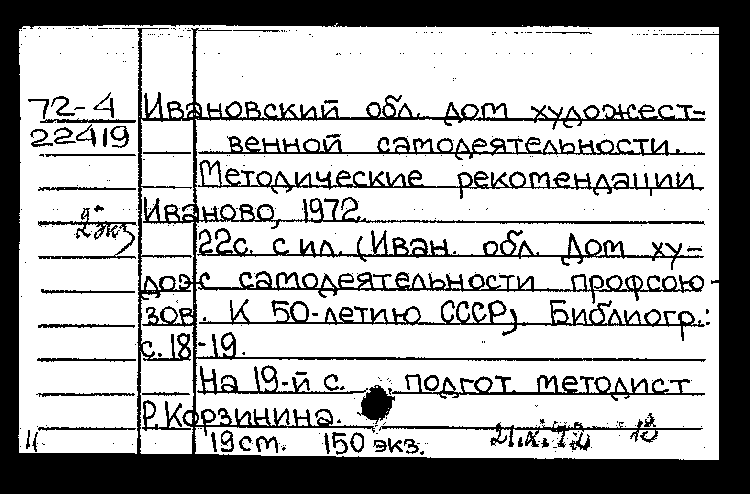 72-4 Ивановский обл. дом художест-
22419 венной самодеятельности.
Методические рекомендации
Иваново, 1972.
2 экз
22с. с ил. (Иван. обл. Дом ху-
дож самодеятельности профсою-
зов. К 50-летию СССР). Библиогр.:
с. 18-19.
На 19-й с. подгот. методист
Р. Корзинина.
19 ст. 150 экз. 21.X.72